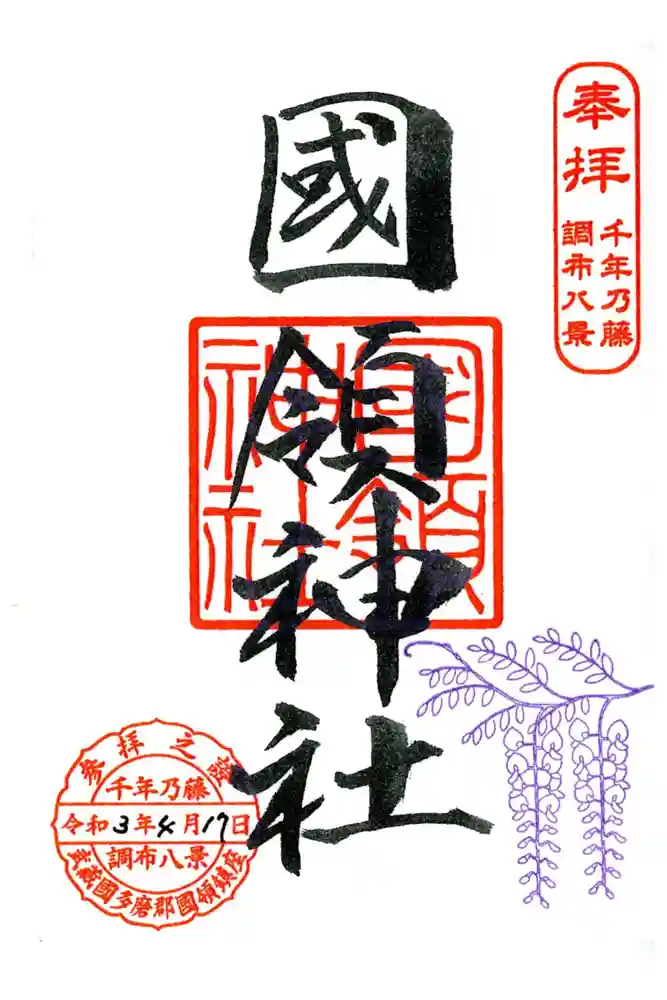 奉拝
千年乃藤
調布八景
國領神社
國領神社
参拝之證
千年乃藤
令和3年4月17日
調布八景
武蔵國多磨郡國領鎮座